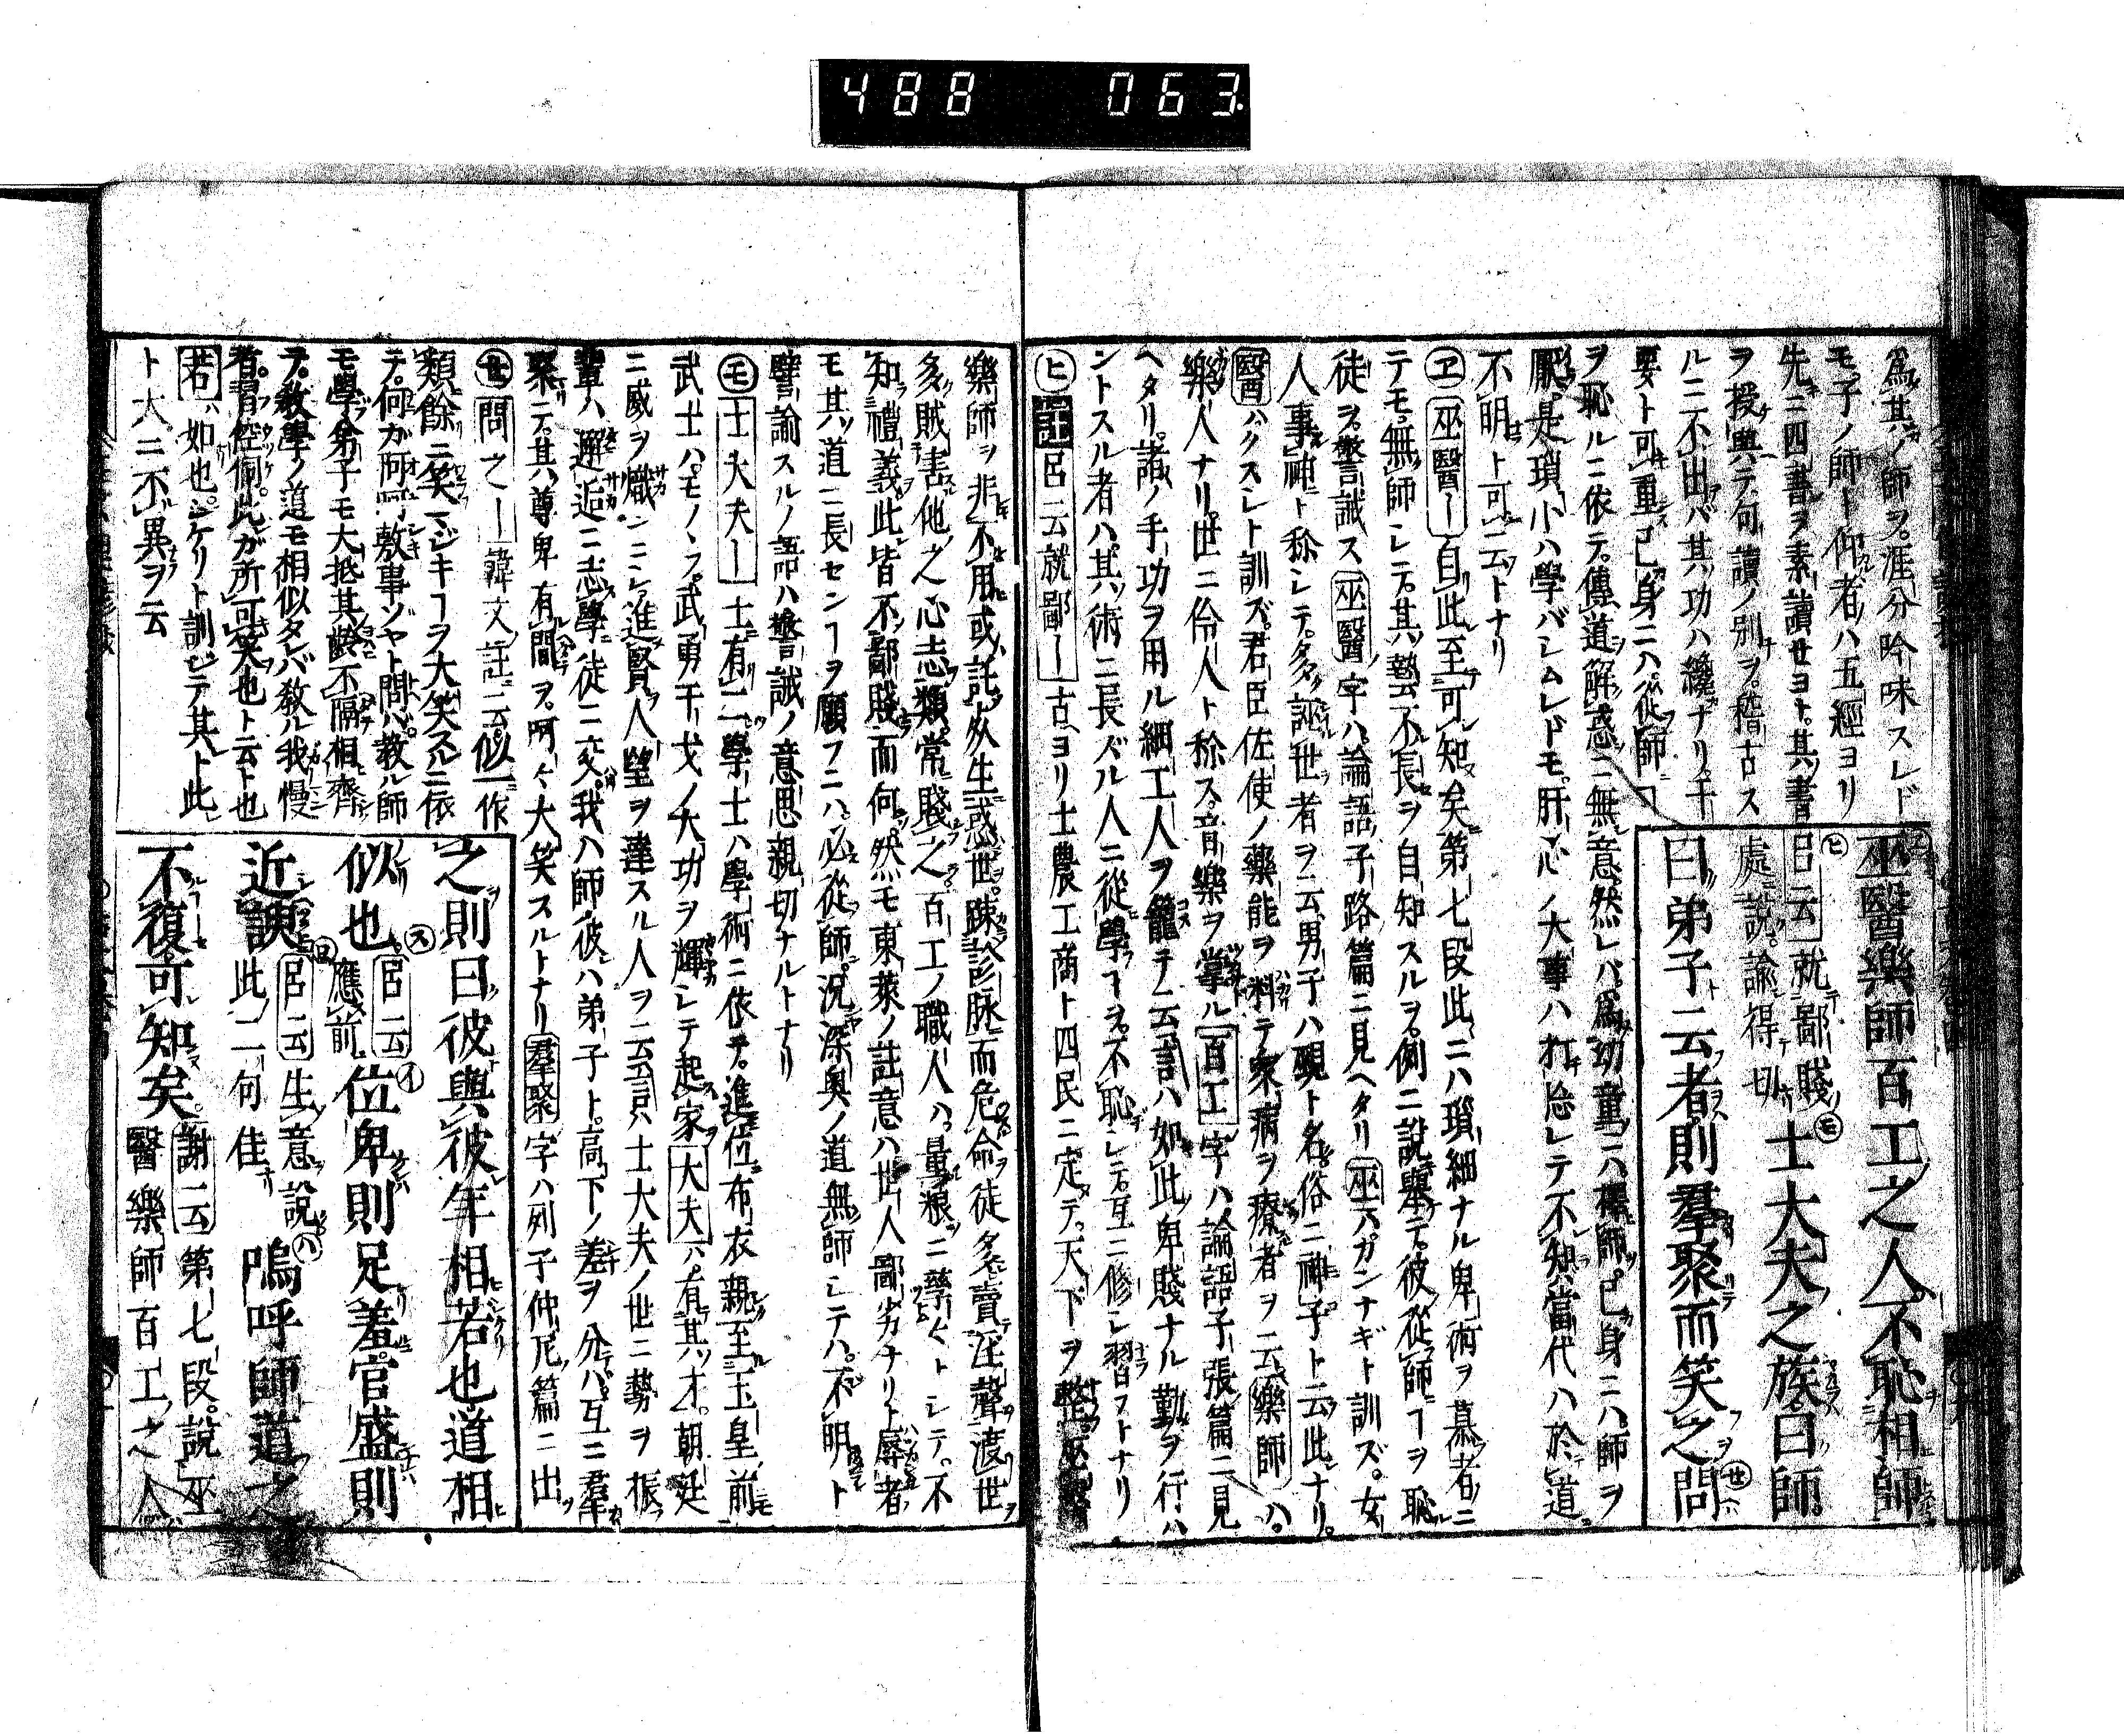 488 063
爲其ノ師ヲ。涯分吟味スレド
モ。子ノ師ト仰者ハ五經ヨリ
先ニ四書ヲ素讀セヨト。其書
ヲ授與テ。句讀ノ別ヲ。稽古ス
ルニ不出バ。其功ハ纔ナリ。干
要ト可重己身ニハ。從師フ
ヲ恥ルニ依テ。傳道解惑ニ無意。然レバ。爲幼童ニハ擇師。己身ニハ。師ヲ
厭。是瑣小ハ學バシムレドモ。肝心ノ大事ハ打捨レテ不知。當代ハ於道
不明ト可云トナリ
巫醫樂師百工之人不恥相師
呂云就鄙賤
處説。諭得切
士大夫之族曰師
曰弟子云者則羣聚而笑之問
ヱ 巫醫ー 自此至可知矣第七段此ニハ瑣細ナル卑術ヲ慕者ニ
テモ。無師レテ。其藝不長ヲ自知スルヲ。例ニ説擧テ。彼從師フヲ恥
徒ヲ。警誡ス 巫醫ノ字ハ。論語子路篇ニ見ヘタリ 巫ハカンナギト訓ズ。女
人事神ト称レテ。多誣世者ヲ云。男子ハ覡ト名。俗ニ神子ト云此ナリ。
醫ハ。クスシト訓ズ。君臣佐使ノ藥能ヲ料テ。衆病ヲ療者ヲ云。樂師ハ。
樂人ナリ。世ニ伶人ト称ス。音樂ヲ掌ル 百工ノ字ハ。論語子張篇ニ見
ヘタリ。諸ノ手功ヲ用ル細工人ヲ籠テ云。言ハ如此卑賤ナル勤ヲ行ハ
ントスル者ハ。其術ニ長ズル人ニ從學フヲ。不恥レテ。互ニ修レ習フトナリ
ヒ 註呂云就鄙ー 古ヨリ士農工商ト四民ニ定テ。天下ヲ整。巫醫
樂師ヲ非不用。或託妖生惑世。疎診脉而危命。徒多賣淫聲渡世。
多賊害他之心志類。常賤之。百工ノ職人ハ。量粮ニ孳々トレテ。不
知禮義。此皆不鄙賤而何。然モ東萊ノ註意ハ。世人鄙劣ナリト辱者
モ其道ニ長センフヲ願フニハ。必從師。況深奥ノ道無師レテハ。不明ト
譬諭スルノ語ハ。警誡ノ意思親切ナルトナリ
モ 士大夫ー 士有二。學士ハ學術ニ依テ。進位布衣親至玉皇前。
武士ハ。モノヽフ。武勇干戈ノ大功ヲ輝レテ起家 大夫ハ。有其才。朝廷
ニ威ヲ熾ンニレ。進賢人望ヲ達スル人ヲ云。言ハ士大夫ノ世ニ勢ヲ振
輩ハ。邂逅ニ志學徒ニ交。我ハ師彼ハ弟子ト。高下ノ差ヲ分バ。互ニ羣
聚テ。其尊卑有間ヲ。呵々大笑スルトナリ 羣聚字ハ列子仲尼篇ニ出
問之ー 韓文註云。似一作
類。餘ニ笑マジキフヲ大笑スルニ依
テ。何ガ呵呵敷事ゾヤト問バ。教ル師
モ學弟子モ大抵其齡不隔相齊
テ。教學ノ道モ相似タバ教ル我慢
者。習倥侗。此ガ所可笑也ト云ト也
若ハ如也。シケリト訓ジテ其ト此
ト大ニ不異ヲ云
之則曰彼與彼年相若也道相
似也
呂云
應前
位卑則足羞官盛則
近諛
呂云生意説
此二何佳
嗚呼師道之
不復可知矣
謝云第七段。説巫
醫樂師百工之人